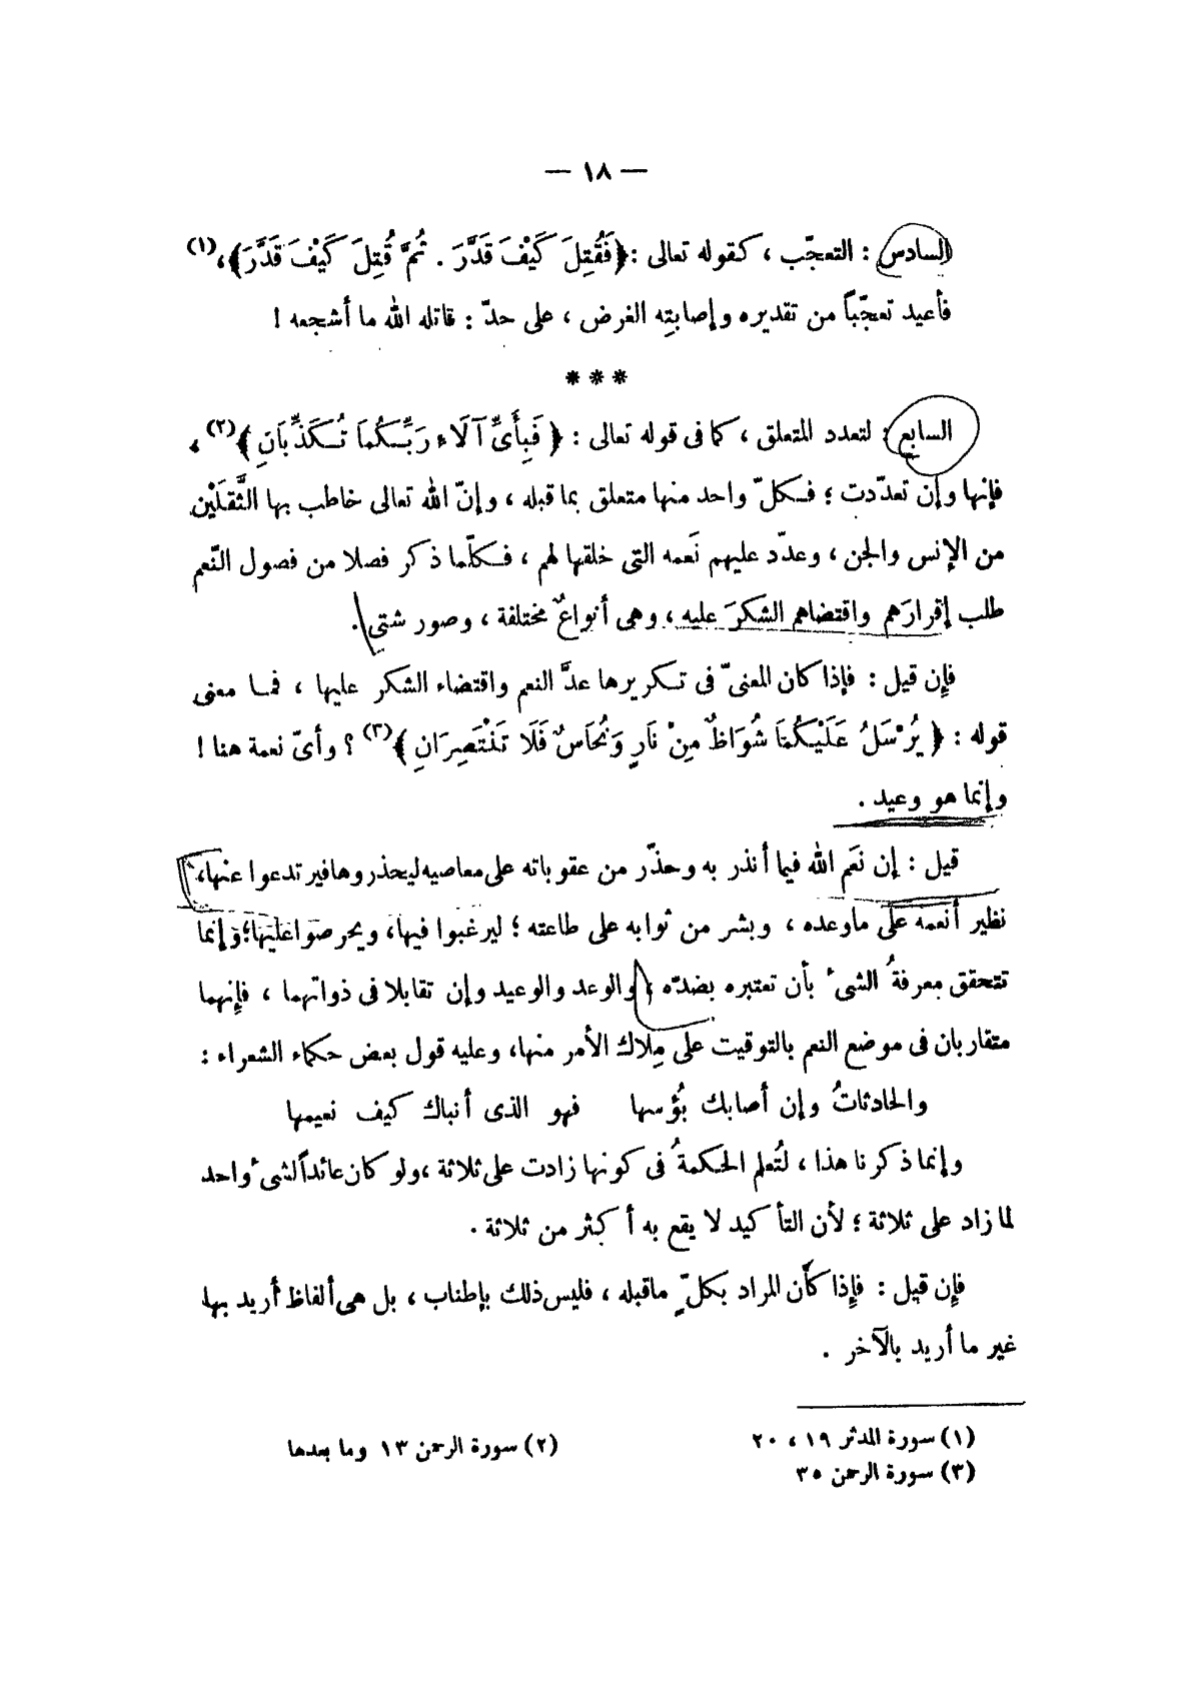 — ١٨ —
السادس : التعجّب ، كقوله تعالى : ﴿فَقُتِلَ كَيْفَ قَدَّرَ . ثُمَّ قُتِلَ كَيْفَ قَدَّرَ﴾،(١)
فأعيد تعجّباً من تقديره وإصابتِه الغرض ، على حدّ : قاتله الله ما أشجعه !
* * *
السابع : لتعدد المتعلق ، كما فى قوله تعالى : ﴿ فَبِأَىِّ آلَاءِ رَبِّكُمَا تُكَذِّبَانِ ﴾(٢) ،
فإنها وإن تعدّدت ؛ فكلّ واحد منها متعلق بما قبله ، وإنّ الله تعالى خاطب بها الثَّقلَيْن
من الإنس والجن ، وعدّد عليهم نَعمه التى خلقها لهم ، فكلّما ذكر فصلا من فصول النّعم
طلب إقرارَهم واقتضاهم الشكرَ عليه ، وهى أنواعٌ مختلفة ، وصور شتى .
فإن قيل : فإذا كان المعنىّ فى تكريرها عدَّ النعم واقتضاء الشكر عليها ، فما معنى
قوله : ﴿ يُرْسَلُ عَلَيْكُمَا شُوَاظٌ مِنْ نَارٍ وَنُحَاسٌ فَلَا تَنْتَصِرَانِ ﴾(٣) ؟ وأىّ نعمة هنا !
وإنما هو وعيد .
قيل : إن نعَم الله فيما أنذر به وحذّر من عقوباته على معاصيه ليحذروها فيرتدعوا عنها،
نظير أنعمه على ماوعده ، وبشر من ثوابه على طاعته ؛ ليرغبوا فيها، ويحرصوا عليها؛ وإنما
تتحقق معرفةُ الشىء بأن تعتبره بضدّه ؛ والوعد والوعيد وإن تقابلا فى ذواتهما ، فإنهما
متقاربان فى موضع النعم بالتوقيت على مِلاك الأمر منها، وعليه قول بعض حكماء الشعراء :
والحادثاتُ وإن أصابك بُؤسها فهو الذى أنباك كيف نعيمها
وإنما ذكرنا هذا ، لتُعلم الحكمةُ فى كونها زادت على ثلاثة ، ولو كان عائداً لشىء واحد
لما زاد على ثلاثة ؛ لأن التأكيد لا يقع به أكثر من ثلاثة .
فإن قيل : فإذا كان المراد بكلّ ماقبله ، فليس ذلك بإطناب ، بل هى ألفاظ أريد بها
غير ما أريد بالآخر .
(١) سورة المدثر ١٩ ، ٢٠
(٢) سورة الرحمن ١٣ وما بعدها
(٣) سورة الرحمن ٣٥